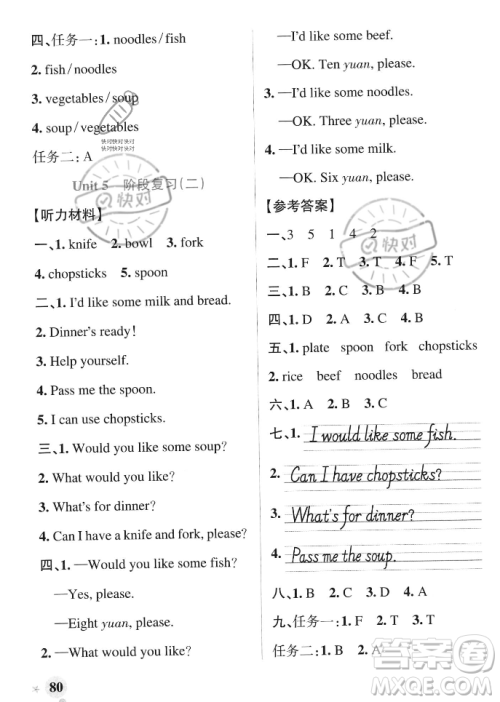 四、任务一:1. noodles/fish
2. fish/noodles
3. vegetables/soup
4. soup/vegetables
任务二:A
Unit 5 阶段复习(二)
【听力材料】
一、1. knife 2. bowl 3. fork
4. chopsticks 5. spoon
二、1. I'd like some milk and bread.
2. Dinner's ready!
3. Help yourself.
4. Pass me the spoon.
5. I can use chopsticks.
三、1. Would you like some soup?
2. What would you like?
3. What's for dinner?
4. Can I have a knife and fork, please?
四、1. —Would you like some fish?
—Yes, please.
—Eight yuan, please.
2. —What would you like?
80
—I'd like some beef.
—OK. Ten yuan, please.
3. —I'd like some noodles.
—OK. Three yuan, please.
4. —I'd like some soup.
—OK. Six yuan, please.
【参考答案】
一、3 5 1 4 2
二、1. F 2. T 3. T 4. F 5. T
三、1. B 2. B 3. A 4. B
四、1. D 2. A 3. C 4. B
五、1. plate spoon fork chopsticks
2. rice beef noodles bread
六、1. A 2. B 3. C
七、1. I would like some fish.
2. Can I have chopsticks?
3. What's for dinner?
4. Pass me the soup.
八、1. B 2. C 3. A 4. D
九、任务一:1. F 2. T 3. T
任务二:1. B 2. A
快对
快对
答案圈
MXQE.COM